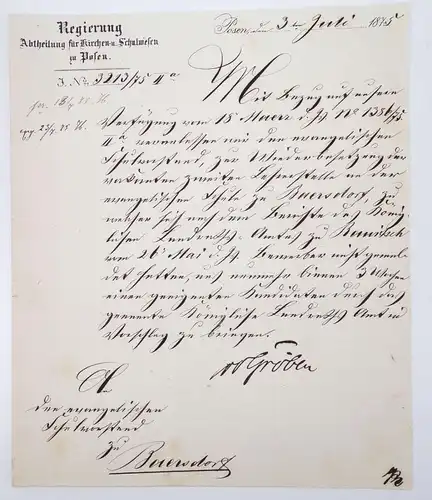 Regierung
Abtheilung für Kirchen- u. Schulwesen
zu Posen.
J. No. 3213/75 IIa
Posen, den 3ten Juli 1875
Mit Bezug auf unsere
Verfügung vom 18. Maerz d. Js. No 1386/75
IIa veranlassen wir den evangelischen
Schulvorstand, zur Wiederbesetzung der
vakanten zweiten Lehrerstelle an der
evangelischen Schule zu Baersdorf, zu
welcher sich nach dem Berichte des König-
lichen Landraths-Amtes zu
vom 26. Mai d. Js. Bewerber nicht gemel-
det hatten, uns nunmehr binnen 3 Wochen
einen geeigneten Kandidaten durch das
genannte Königliche Landraths Amt in
Vorschlag zu bringen.
Gröben
An
den evangelischen
Schulvorstand
zu
Baersdorf